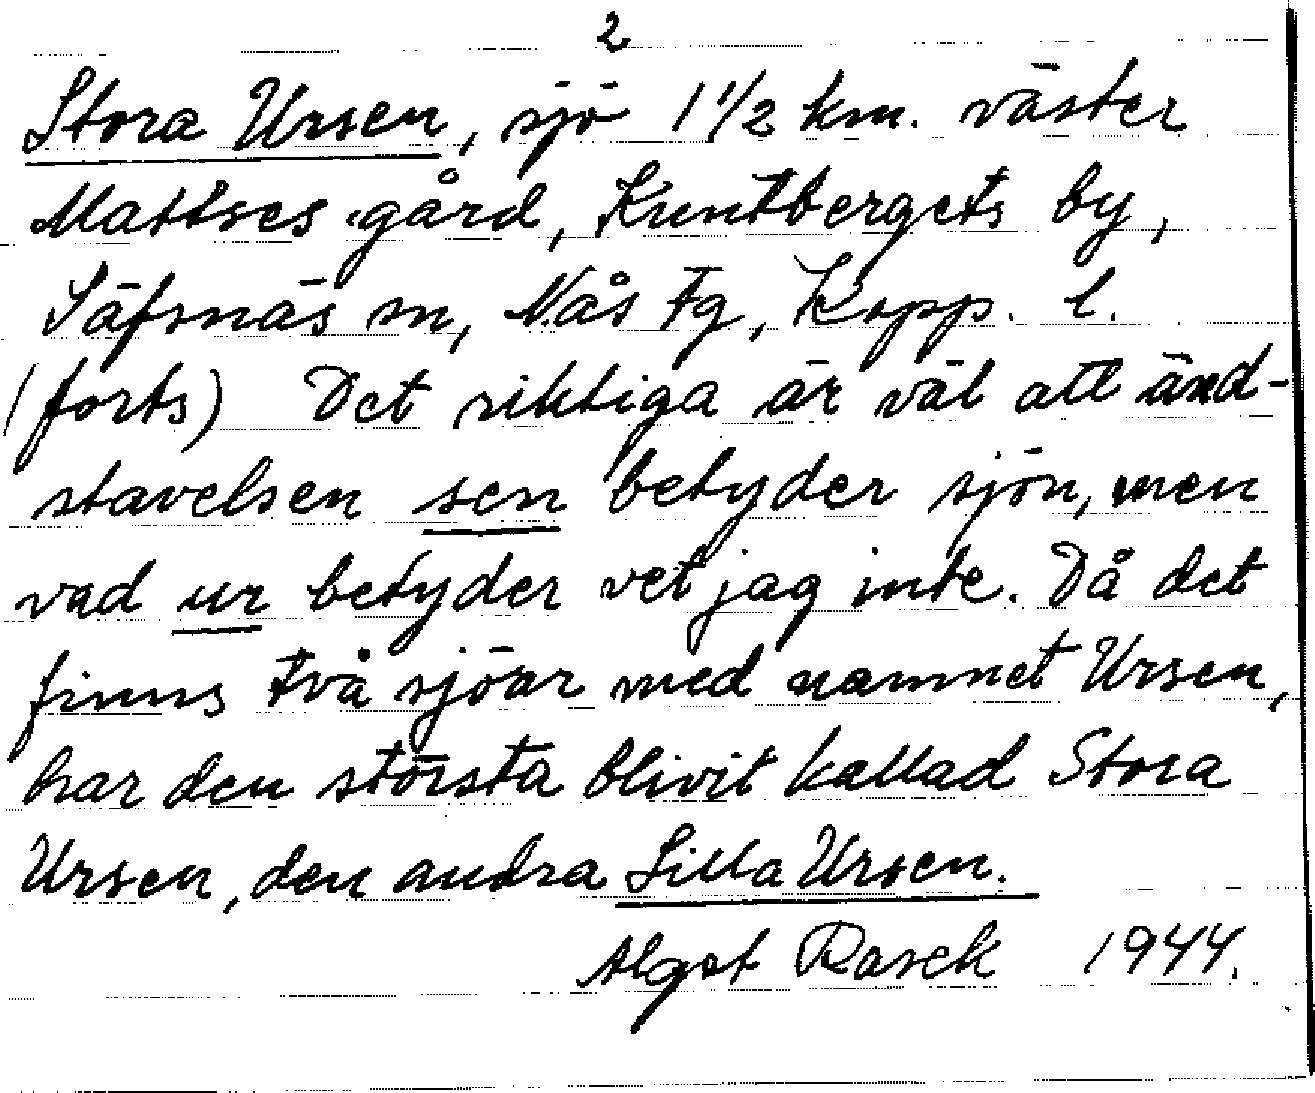 2
Stora Ursen, sjö 1 1/2 km. väster
Mattses gård, Kuntbergets by,
Säfsnäs sn, Nås Fg, Kopp. l.
(forts) Det riktiga är väl att änd-
stavelsen sen betyder sjön, men
vad ur betyder vet jag inte. Då det
finns två sjöar med namnet Ursen,
har den största blivit kallad Stora
Ursen, den andra Lilla Ursen.
Algot Rasck 1944.